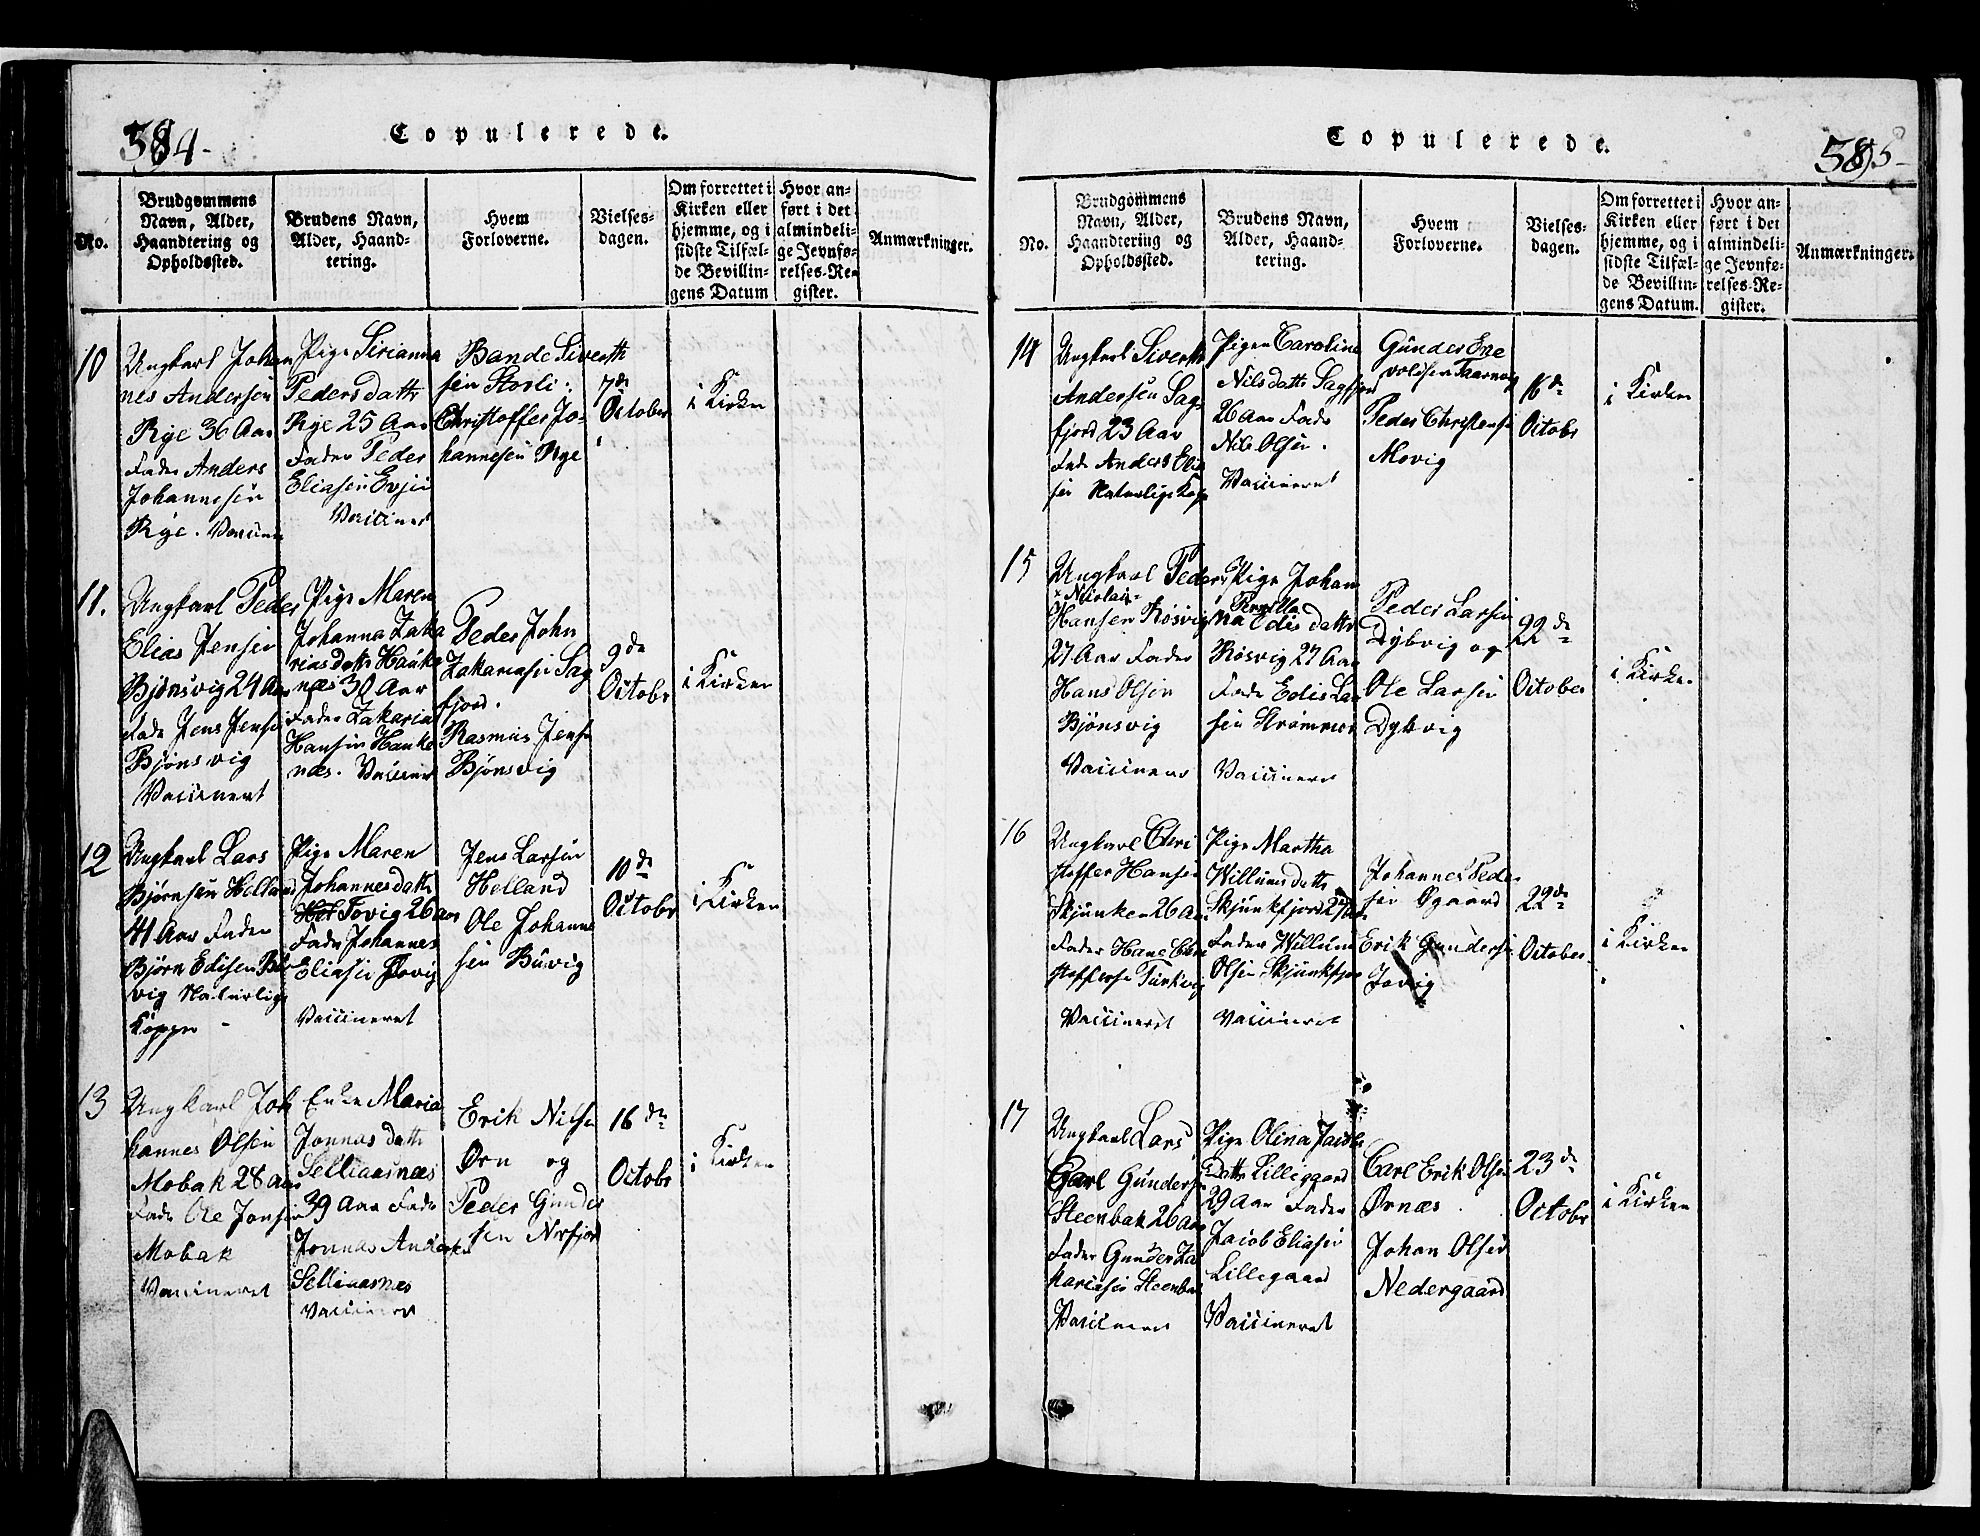 584-
Copulerede.
No.
Brudgommens
Navn, Alder,
Haandtering og
Opholdssted.
Brudens Navn,
Alder, Haand-
tering.
Hvem
Forloverne.
Vielses-
dagen.
Om forrettet i
Kirken eller
hjemme, og i
sidste Tilfæl-
de Bevillin-
gens Datum
Hvor an-
ført i det
almindeli-
ge Jevnfø-
relses-Re-
gister.
Anmærkninger.
10
Ungkarl Johan
nes Andersen
Rye 36 Aar
Fader Anders
Johannesen
Rye.
Pige Sirianna
Pedersdattr
Rye 25 Aar
Fader Peder
Eliasen Evjen
Bande Siverth
sen Storli.
Christoffer Jo-
hannesen Rye
7de
October
i Kirken
11.
Ungkarl Peder
Elias Jensen
Bjönsvig 24 Aar
Fader Jens Jensen
Bjönsvig
Vaccineret
Pige Maren
Johanna Zaka
riasdattr Hauke
næs 30 Aar
Fader Zakaria
Hansen Hauke
næs.
Peder John
Zakariasen Sag
fjord.
Rasmus Jensen
Bjönsvig
9de
Octobr
i Kirken
12
Ungkarl Lars
Björnsen Helland
41 Aar Fader
Björn Edisen Bu
vig Naturlige
Kopper
Pige Maren
Johannesdattr
Hel Tovig 26 Aar
Fader Johannes
Eliasen Tovig
Vaccineret
Jens Larsen
Helland
Ole Johanne
sen Buvig
10de
Octobr
i Kirken
13
Ungkarl Joh
hannes Olsen
Mobak 28 Aar
Fader Ole Jonsen
Mobak
Vaccineret
Enke Maria
Jonnasdattr
Sellinasnæs
39 Aar Fader
Jonnas Andersen
Sellinasnæs
Vaccineret
Erik Nilsen
Ørn og
Peder Gunder
sen Norfjord
16de
Octobr
i Kirken
Copulerede.
585-
No.
Brudgommens
Navn, Alder,
Haandtering og
Opholdssted.
Brudens Navn,
Alder, Haand-
tering.
Hvem
Forloverne.
Vielses-
dagen.
Om forrettet i
Kirken eller
hjemme, og i
sidste Tilfæl-
de Bevillin-
gens Datum.
Hvor an-
ført i det
almindeli-
ge Jevnfø-
relses-Re-
gister.
Anmærkninger.
14
Ungkarl Siverth
Andersen Sag
fjord 23 Aar
Fader Anders Elia
sen Naturlige Kop
Pigen Caroline
Nilsdattr Sagfjord
26 Aar Fader
Nils Olsen.
Vaccineret
Gunder Ene
voldsen Taarnvig
Peder Christensen
Movig
16de
Octobr
i Kirken
15
Ungkarl Peder
× Nicolai
Hansen Rösvig
27 Aar Fader
Hans Olsen
Bjönsvig
Vaccineret
Pige Johan
Pernilla
na Edisdattr
Rösvig 27 Aar
Fader Edis Lar
sen Strømmen
Vaccineret
Peder Larsen
Dybvig og
Ole Larsen
Dybvig
22de
October
i Kirken
16
Ungkarl Chri
stoffer Hansen
Skjunken 26 Aar
Fader Hans Chri
stoffersen
Vaccineret
Pige Martha
Willumsdattr
Skjunkfjord
Fader Willum
Olsen Skjunkfjor
Vaccineret
Johannes Peder
sen Øgaard
Erik Gundersen
22de
October
i Kirken
17
Ungkarl Lars
Carl Gundersen
Steenbak 26 Aar
Fader Gunder Za
kariasen Steenbak
Vaccineret
Pige Olina Jacobs
Dattr Lilleggaard
29 Aar Fader
Jacob Eliasen
Lillegaard
Vaccineret
Carl Erik Olsen
Ørnæs
Johan Olsen
Nedergaard
23de
Octobr
i Kirken